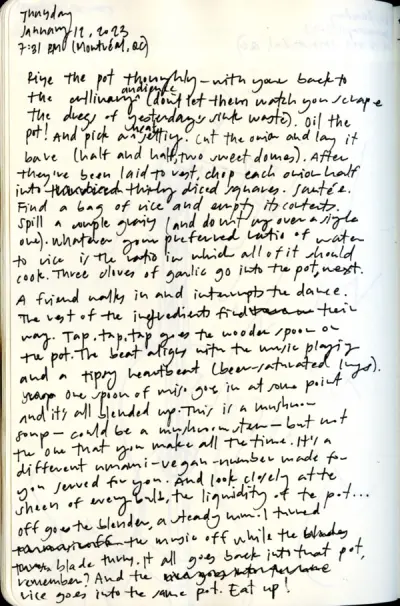 Thursday
January 12, 2023
7:31 PM (Montréal, QC)
Rinse the pot thoroughly – with your back to
the culinary audience (don't let them watch you scrape
the dregs of yesterday's sink waste). Oil the
pot! And pick a heat setting. Cut the onion and lay it
bare (half and half, two sweet domes). After
they've been laid to rest, chop each onion half
into thinly diced squares. Sauté.
Find a bag of rice and empty its contents.
Spill a couple grains (and don't cry over a single
one). Whatever your preferred ratio of water
to rice is the ratio in which all of it should
cook. Three cloves of garlic go into the pot, next.
A friend walks in and interrupts the dance.
The rest of the ingredients find their
way. Tap, tap, tap goes the wooden spoon on
the pot. The beat aligns with the music playing
and a tipsy heartbeat (beer-saturated lungs).
One spoon of miso goes in at some point
and it's all blended up. This is a mushroom
soup – could be a mushroom stew – but not
the one that you make all the time. It's a
different umami-vegan-number made for
you served for you. And look closely at the
sheen of every bulb, the liquidity of the pot...
off goes the blender, a steady hum. I turned
the music off while the
blade turns. It all goes back into that pot,
remember? And the
rice goes into the same pot. Eat up!